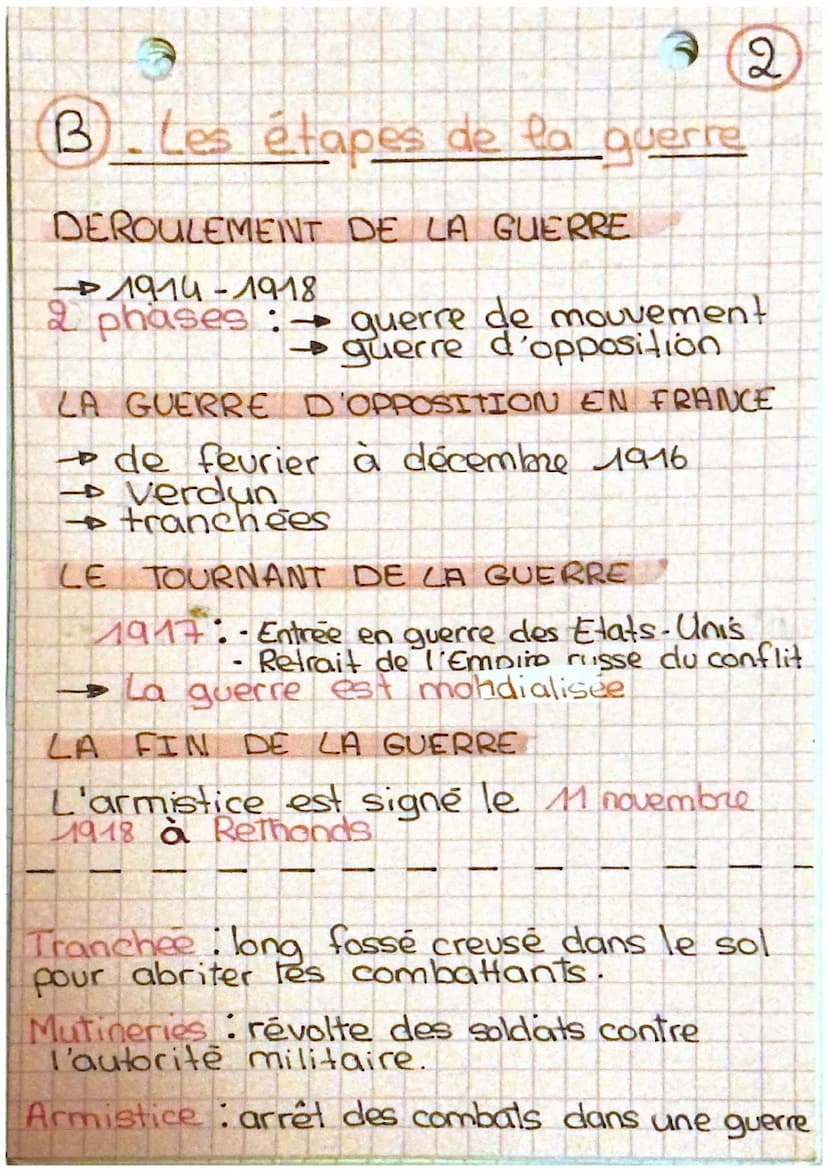 2
B. Les étapes de la guerre
DEROULEMENT DE LA GUERRE
→ 1914-1918
2 phases : → guerre de mouvement
→ guerre d'opposition
LA GUERRE D'OPPOSITION EN FRANCE
→ de fevrier à décembre 1916
→ Verdun
→ tranchées
LE TOURNANT DE LA GUERRE
1917 : - Entrée en guerre des Etats-Unis
- Retrait de l'Empire russe du conflit
→ La guerre est mondialisée
LA FIN DE LA GUERRE
L'armistice est signé le 11 novembre
1918 à Rethonds
Tranchée : long fossé creusé dans le sol
pour abriter les combattants.
Mutineries : révolte des soldats contre
l'autorité militaire.
Armistice : arrêt des combats dans une guerre